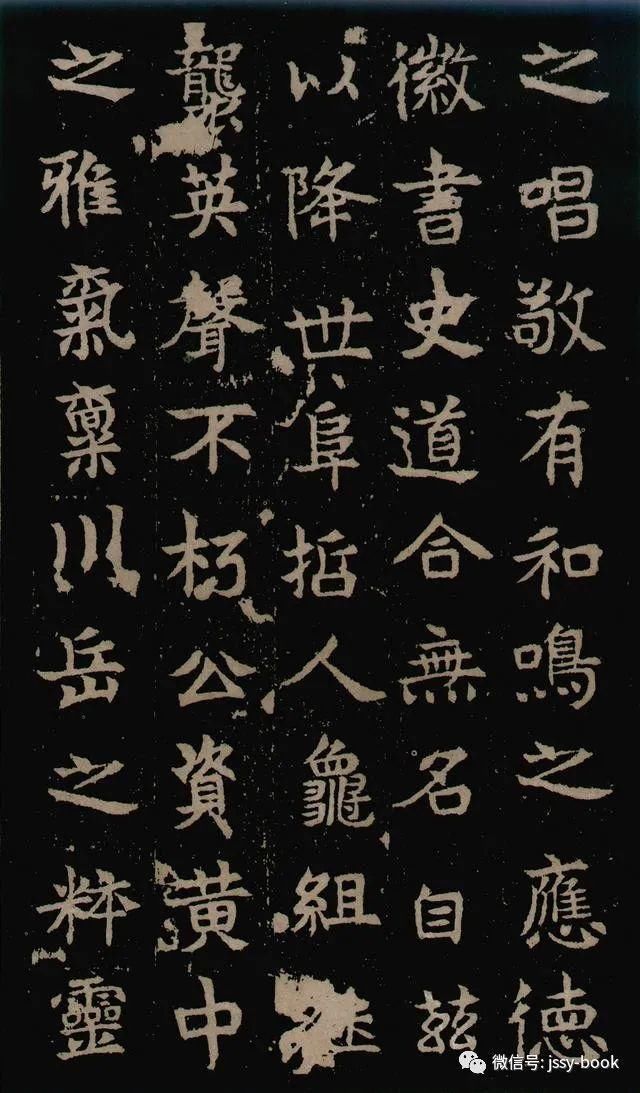 之唱敬有和鳴之應德
徽書史道合無名自茲
以降世阜哲人龜組
襲英聲不朽公資黄中
之雅氣稟川岳之粋靈
微信号: jssy-book